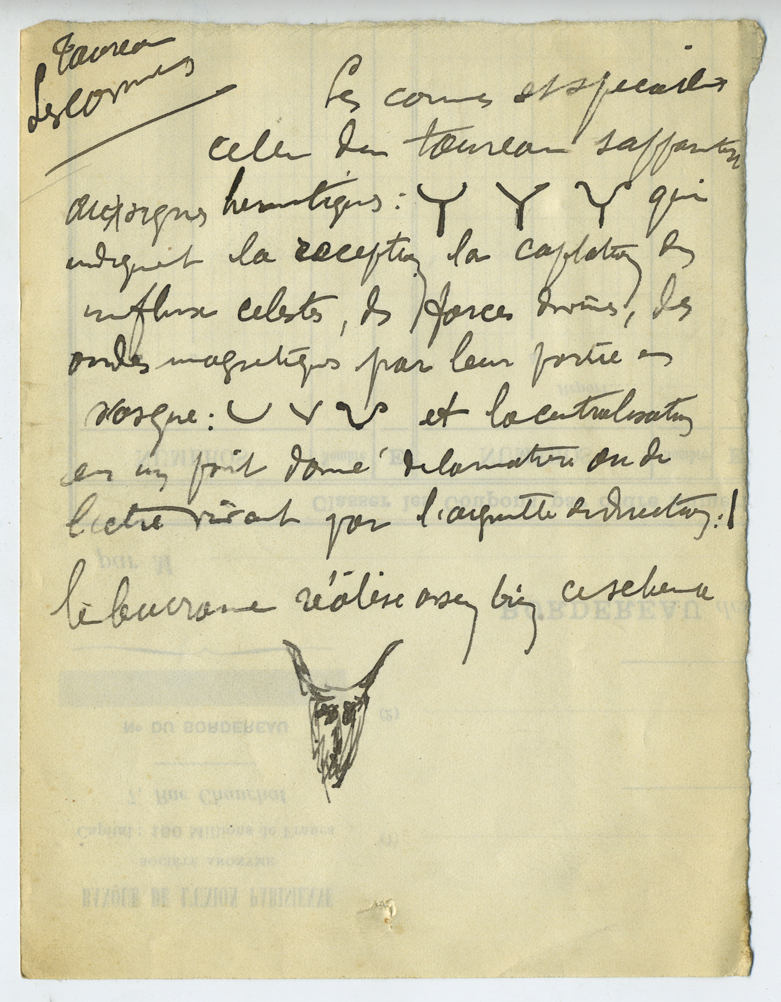 Taureau
Les cornes
Les cornes et spécialem
celles du taureau s'apparentent
aux signes hermétiques : Y Y Y qui
indiquent la réception, la captation des
influx célestes, des forces divines, des
ondes magnétiques par leur partie en
vasque : et la centralisation
en un point donné de la matière ou de
l'être vivant par l'aiguette de direction : |
le bucrane réalise assez bien ce schema
Classer les Coupons par
NUMÉROS
par M
BORDEREAU des
N° DU BORDEREAU
(2)
7, Rue Chauchat
Capital : 100 Millions de Francs
(1)
SOCIÉTÉ ANONYME
BANQUE DE L'UNION PARISIENNE